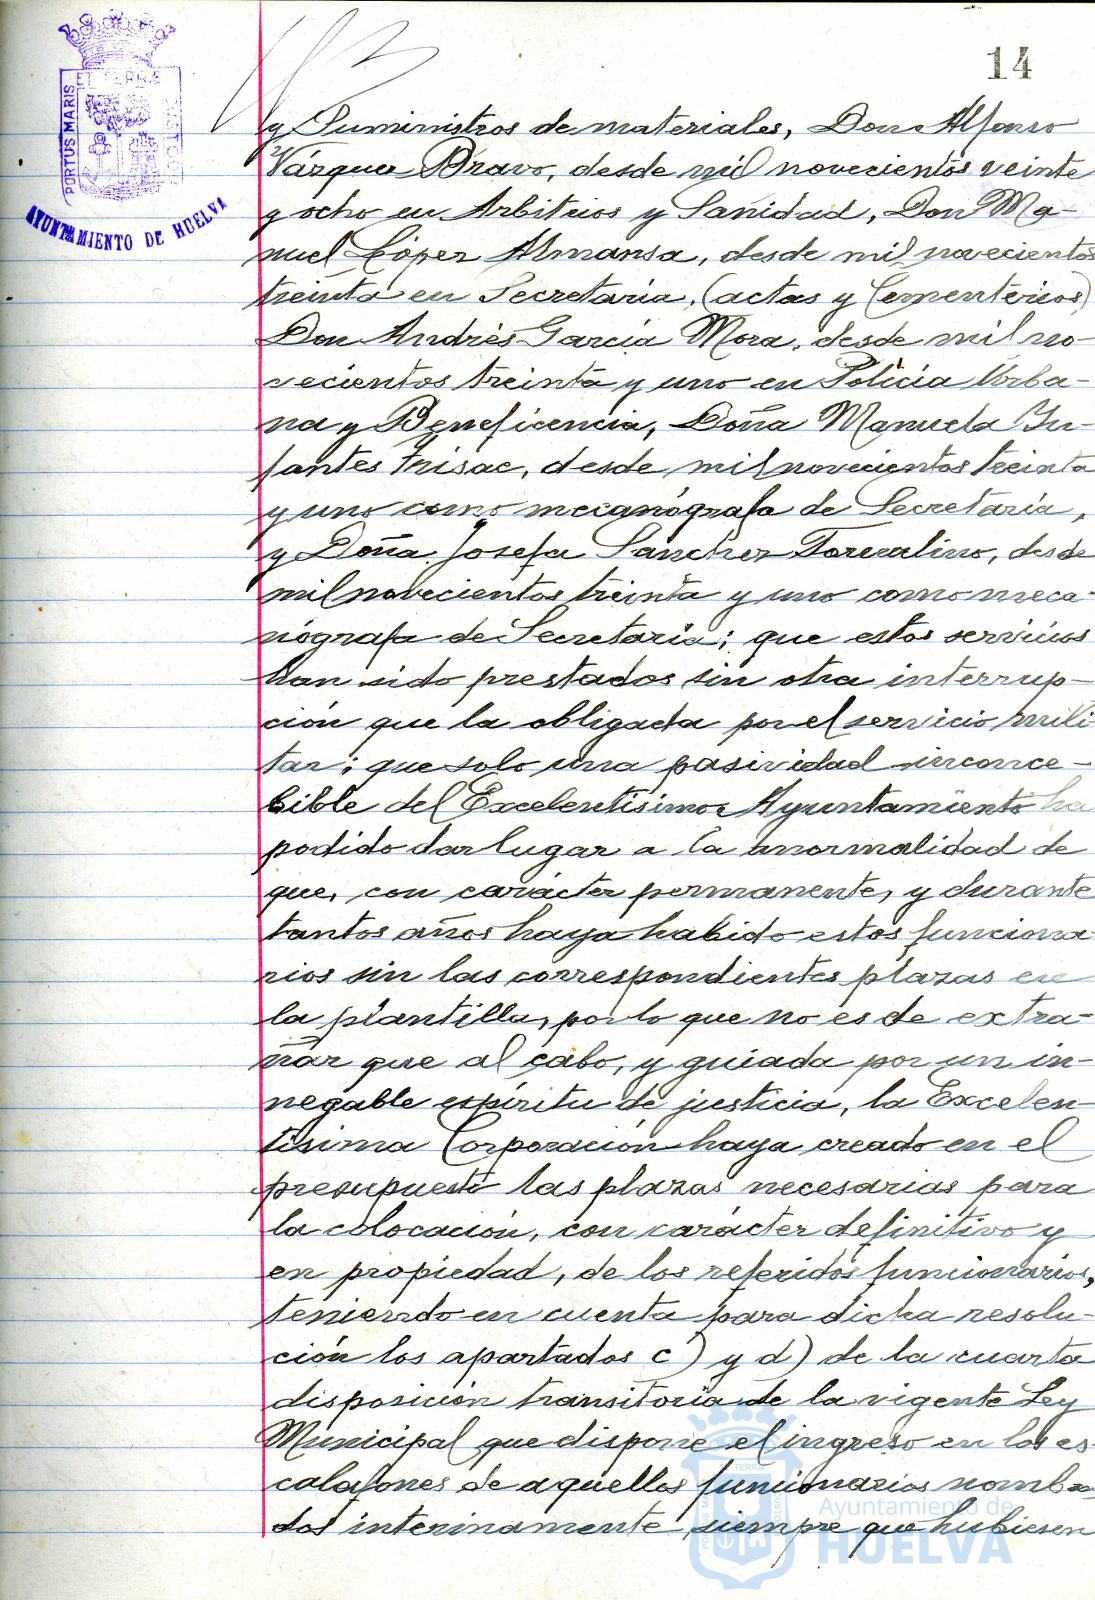 14
PORTUS MARIS
ET TERRÆ
CUSTODIA
AYUNTAMIENTO DE HUELVA
y Suministros de materiales, Don Alfonso
Vázquez Bravo, desde mil novecientos veinte
y ocho en Arbitrios y Sanidad, Don Ma-
nuel López Almansa, desde mil novecientos
treinta en Secretaria, (actas y Cementerios)
Don Andrés García Mora, desde mil no-
vecientos treinta y uno en Policía Urba-
na y Beneficencia, Doña Manuela In-
fantes Frisac, desde mil novecientos treinta
y uno como mecanógrafa de Secretaría,
y Doña Josefa Sanchez Toscalino, desde
mil novecientos treinta y uno como meca-
nógrafa de Secretaría; que estos servicios
han sido prestados sin otra interrup-
ción que la obligada por el servicio mili-
tar; que solo una pasividad inconce-
bible del Excelentísimo Ayuntamiento ha
podido dar lugar a la anormalidad de
que, con carácter permanente, y durante
tantos años haya habido estos funciona
rios sin las correspondientes plazas en
la plantilla, por lo que no es de extra-
ñar que al cabo, y guiada por un in-
negable espíritu de justicia, la Excelen-
tísima Corporación haya creado en el
presupuesto las plazas necesarias para
la colocación, con carácter definitivo y
en propiedad, de los referidos funcionarios,
teniendo en cuenta para dicha resolu-
ción los apartados c) y d) de la cuarta
disposición transitoria de la vigente Ley
Municipal que dispone el ingreso en los es-
calafones de aquellos funcionarios nombra-
dos interinamente, siempre que hubiesen
Ayuntamiento de
HUELVA